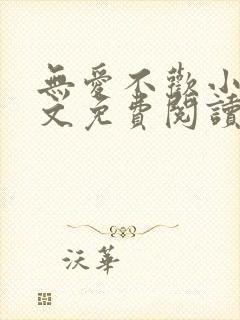 無愛不歡小
文免費閱讀
沃華